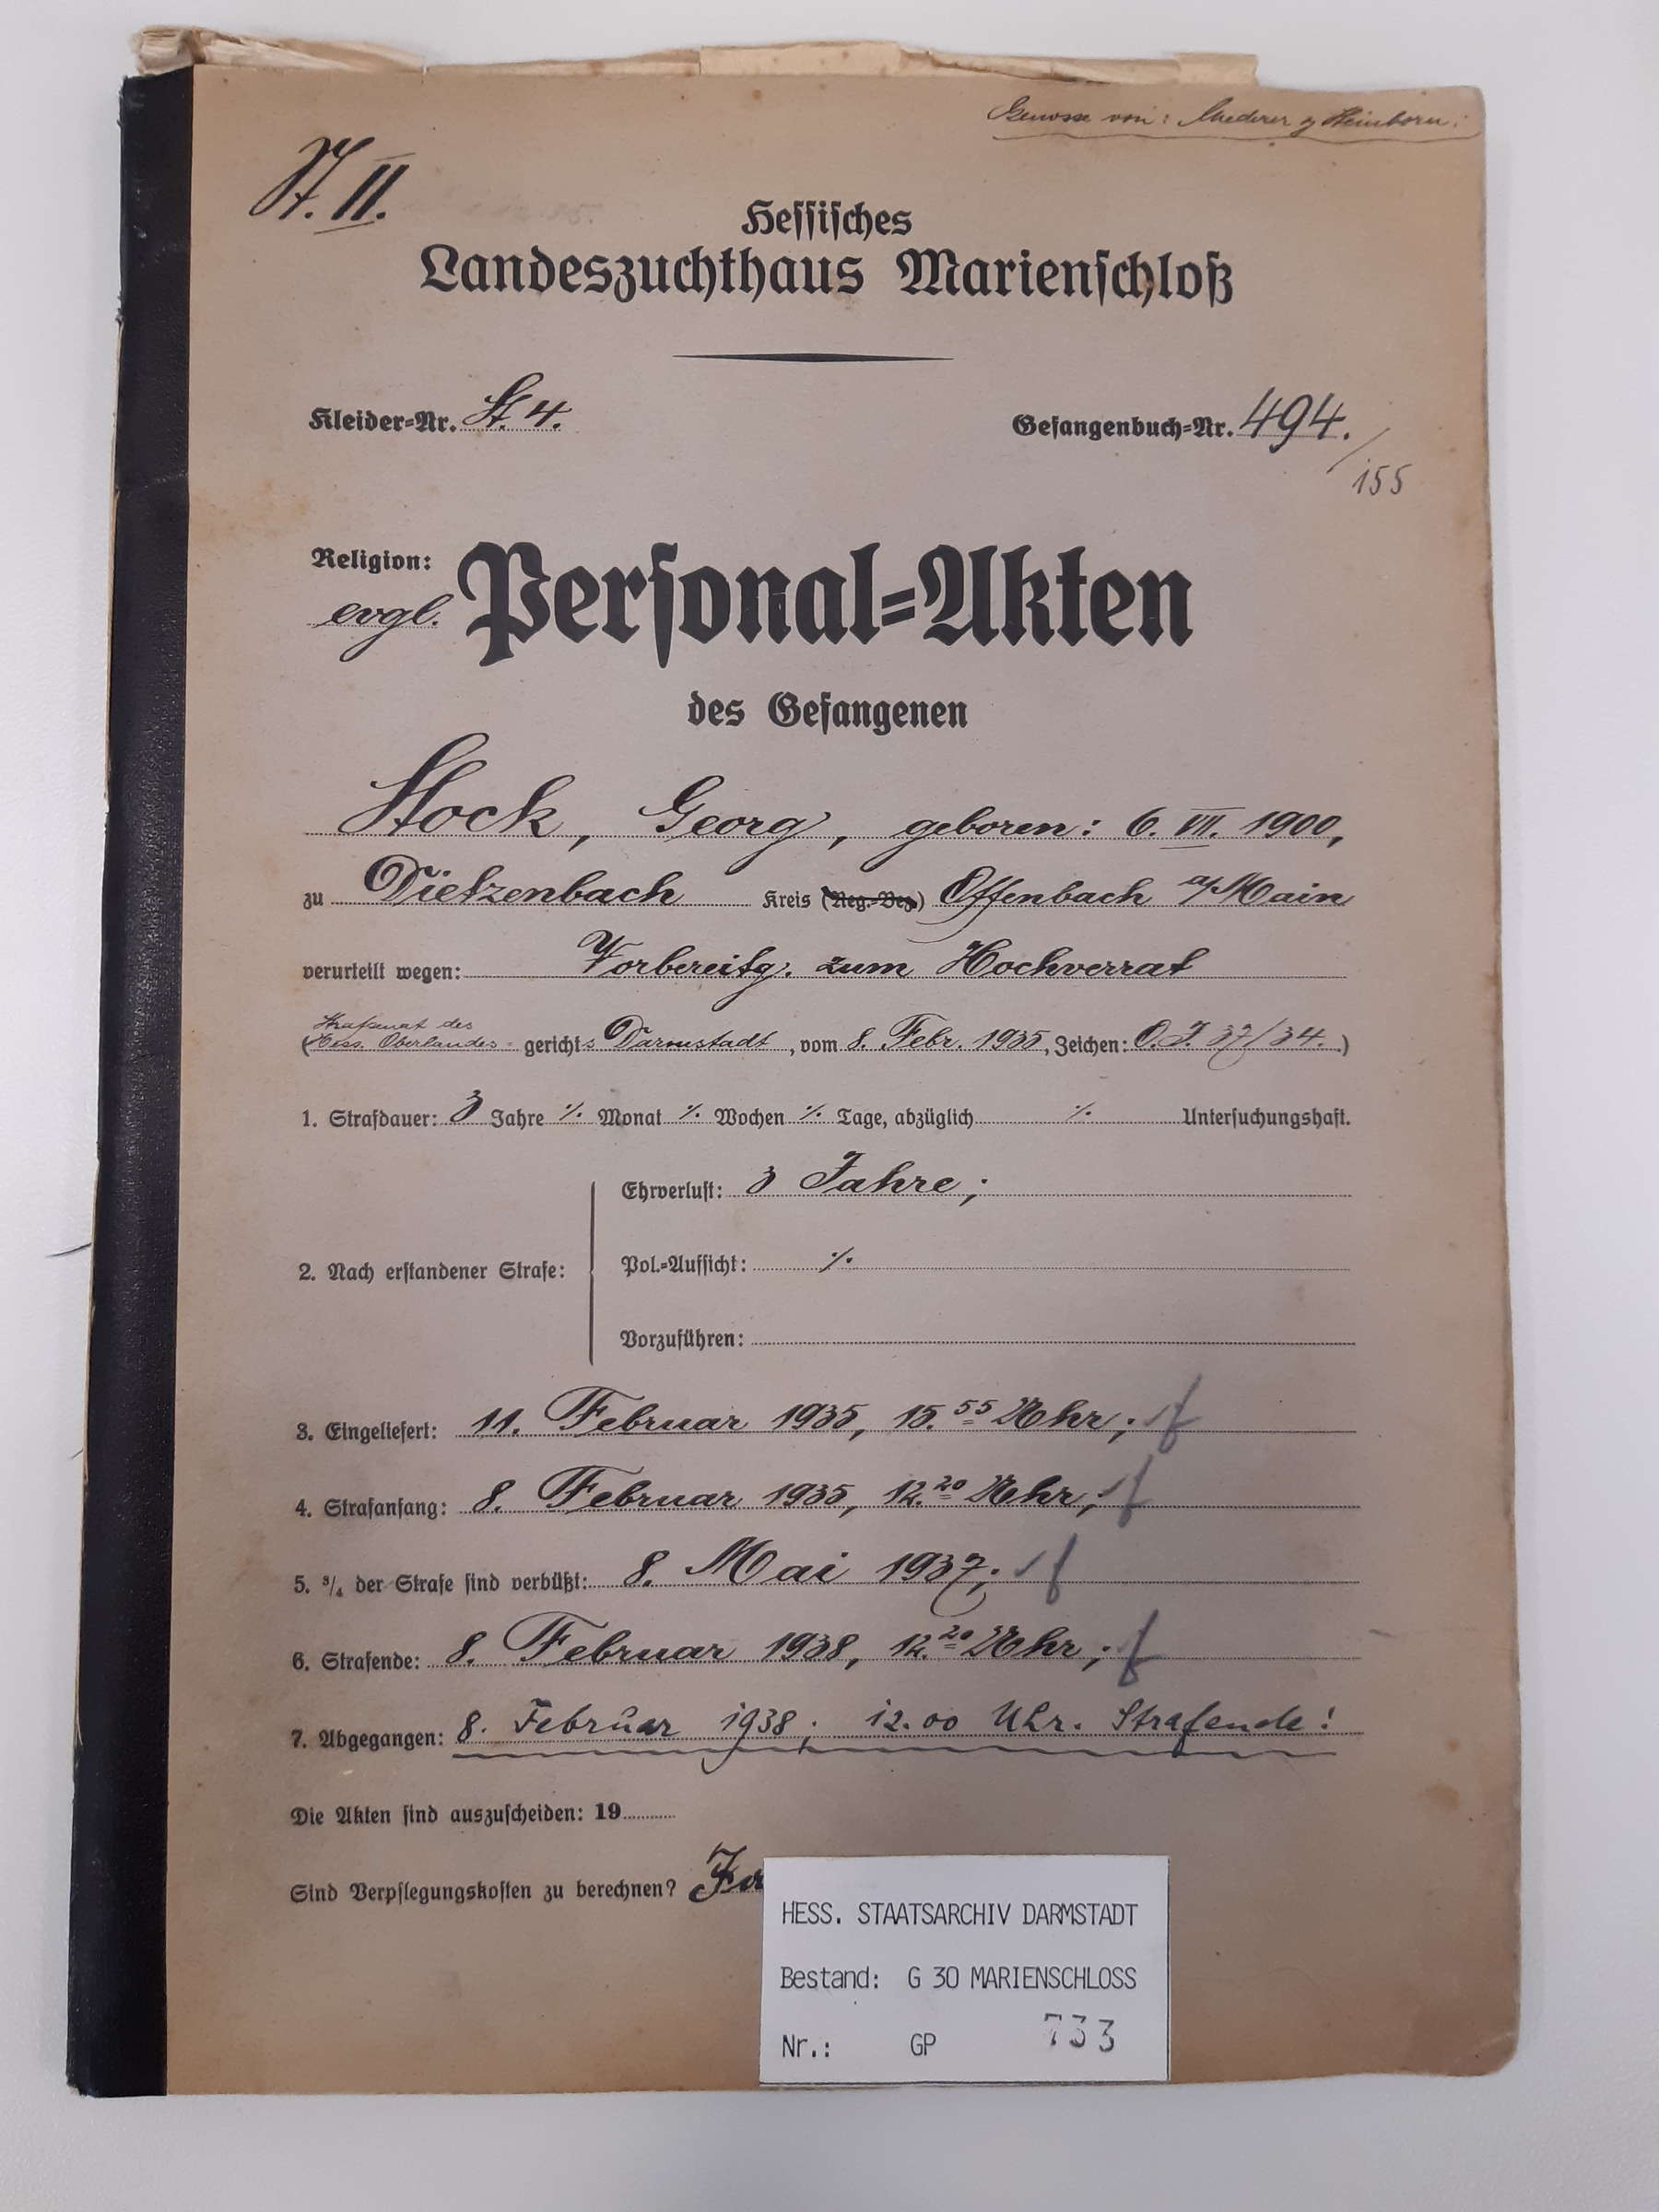 Genosse von:
St. II.
Hessisches
Landeszuchthaus Marienschloß
Kleider-Nr. St. 4.
Gefangenbuch-Nr. 494.
/155
Religion:
evgl.
Personal-Akten
des Gefangenen
Stock, Georg, geboren: 6. VII. 1900,
zu Dietzenbach Kreis (Reg.-Bez.) Offenbach a/Main
verurteilt wegen: Vorbereitg. zum Hochverrat
Strafsenat des
(Hess. Oberlandes-gerichts Darmstadt, vom 8. Febr. 1935, Zeichen: O.J. 37/34.)
1. Strafdauer: 3 Jahre ·/. Monat ·/. Wochen ·/. Tage, abzüglich ·/. Untersuchungshaft.
2. Nach erstandener Strafe:
Ehrverlust: 3 Jahre;
Pol.-Aufsicht: ·/.
Vorzuführen:
3. Eingeliefert: 11. Februar 1935, 15.55 Uhr;
4. Strafanfang: 8. Februar 1935, 12.20 Uhr;
5. 3/4 der Strafe sind verbüßt: 8. Mai 1937;
6. Strafende: 8. Februar 1938, 12.20 Uhr;
7. Abgegangen: 8. Februar 1938; 12.00 Uhr. Strafende!
Die Akten sind auszuscheiden: 19
Sind Verpflegungskosten zu berechnen? Ja
HESS. STAATSARCHIV DARMSTADT
Bestand: G 30 MARIENSCHLOSS
Nr.: GP 733